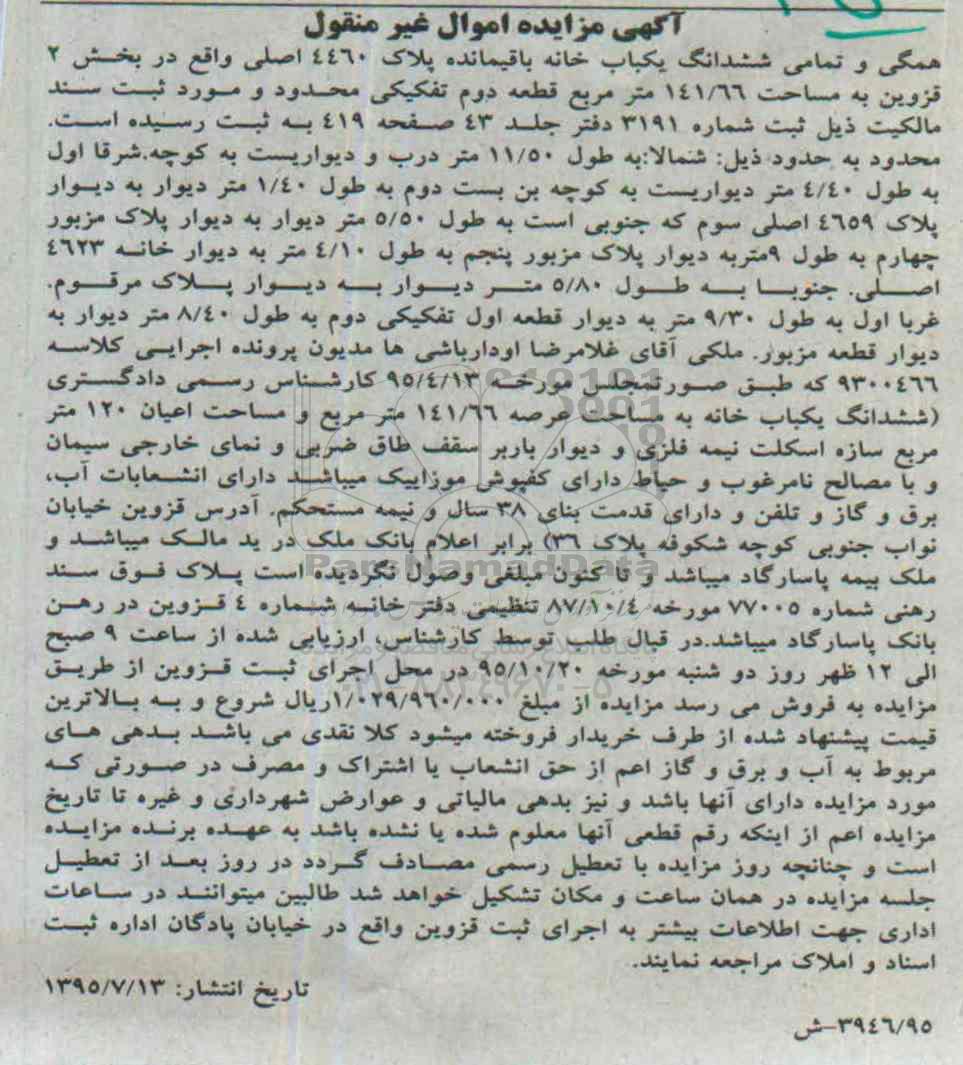 آگهی مزایده اموال غیر منقول
همگی و تمامی ششدانگ یکباب خانه باقیمانده پلاک ٤٤٦٠ اصلی واقع در بخش ۲
قزوین به مساحت ۱٤۱/٦٦ متر مربع قطعه دوم تفکیکی محدود و مورد ثبت سند
مالکیت ذیل ثبت شماره ۳۱۹۱ دفتر جلد ٤۳ صفحه ٤۱۹ به ثبت رسیده است.
محدود به حدود ذیل: شمالا:به طول ۱۱/٥۰ متر درب و دیواریست به کوچه.شرقا اول
به طول ٤/٤۰ متر دیواریست به کوچه بن بست دوم به طول ۱/٤۰ متر دیوار به دیوار
پلاک ٤٦٥۹ اصلی سوم که جنوبی است به طول ٥/٥۰ متر دیوار به دیوار پلاک مزبور
چهارم به طول ۹متربه دیوار پلاک مزبور پنجم به طول ٤/۱۰ متر به دیوار خانه ٤٦۲۳
اصلی. جنوبا به طول ٥/۸۰ متر دیوار به دیوار پلاک مرقوم.
غربا اول به طول ۹/۳۰ متر به دیوار قطعه اول تفکیکی دوم به طول ۸/٤۰ متر دیوار به
دیوار قطعه مزبور. ملکی آقای غلامرضا اودارباشی ها مدیون پرونده اجرایی کلاسه
۹۳۰۰٤٦٦ که طبق صورتمجلس مورخه ۹٥/٤/۱۳ کارشناس رسمی دادگستری
(ششدانگ یکباب خانه به مساحت عرصه ۱٤۱/٦٦ متر مربع و مساحت اعیان ۱۲۰ متر
مربع سازه اسکلت نیمه فلزی و دیوار باربر سقف طاق ضربی و نمای خارجی سیمان
و با مصالح نامرغوب و حیاط دارای کفپوش موزاییک میباشد دارای انشعابات آب،
برق و گاز و تلفن و دارای قدمت بنای ۳۸ سال و نیمه مستحکم. آدرس قزوین خیابان
نواب جنوبی کوچه شکوفه پلاک ۳٦) برابر اعلام بانک ملک در ید مالک میباشد و
ملک بیمه پاسارگاد میباشد و تا کنون مبلغی وصول نگردیده است پلاک فوق سند
رهنی شماره ۷۷۰۰٥ مورخه ۸۷/۱۰/٤ تنظیمی دفتر خانه شماره ٤ قزوین در رهن
بانک پاسارگاد میباشد.در قبال طلب توسط کارشناس، ارزیابی شده از ساعت ۹ صبح
الی ۱۲ ظهر روز دو شنبه مورخه ۹٥/۱۰/۲۰ در محل اجرای ثبت قزوین از طریق
مزایده به فروش می رسد مزایده از مبلغ ۱/۰۲۹/۹٦۰/۰۰۰ریال شروع و به بالاترین
قیمت پیشنهاد شده از طرف خریدار فروخته میشود کلا نقدی می باشد بدهی های
مربوط به آب و برق و گاز اعم از حق انشعاب یا اشتراک و مصرف در صورتی که
مورد مزایده دارای آنها باشد و نیز بدهی مالیاتی و عوارض شهرداری و غیره تا تاریخ
مزایده اعم از اینکه رقم قطعی آنها معلوم شده یا نشده باشد به عهده برنده مزایده
است و چنانچه روز مزایده با تعطیل رسمی مصادف گردد در روز بعد از تعطیل
جلسه مزایده در همان ساعت و مکان تشکیل خواهد شد طالبین میتوانند در ساعات
اداری جهت اطلاعات بیشتر به اجرای ثبت قزوین واقع در خیابان پادگان اداره ثبت
اسناد و املاک مراجعه نمایند.
تاریخ انتشار: ۱۳۹٥/۷/۱۳
۳۹٤٦/۹٥-ش
ParsNamadData